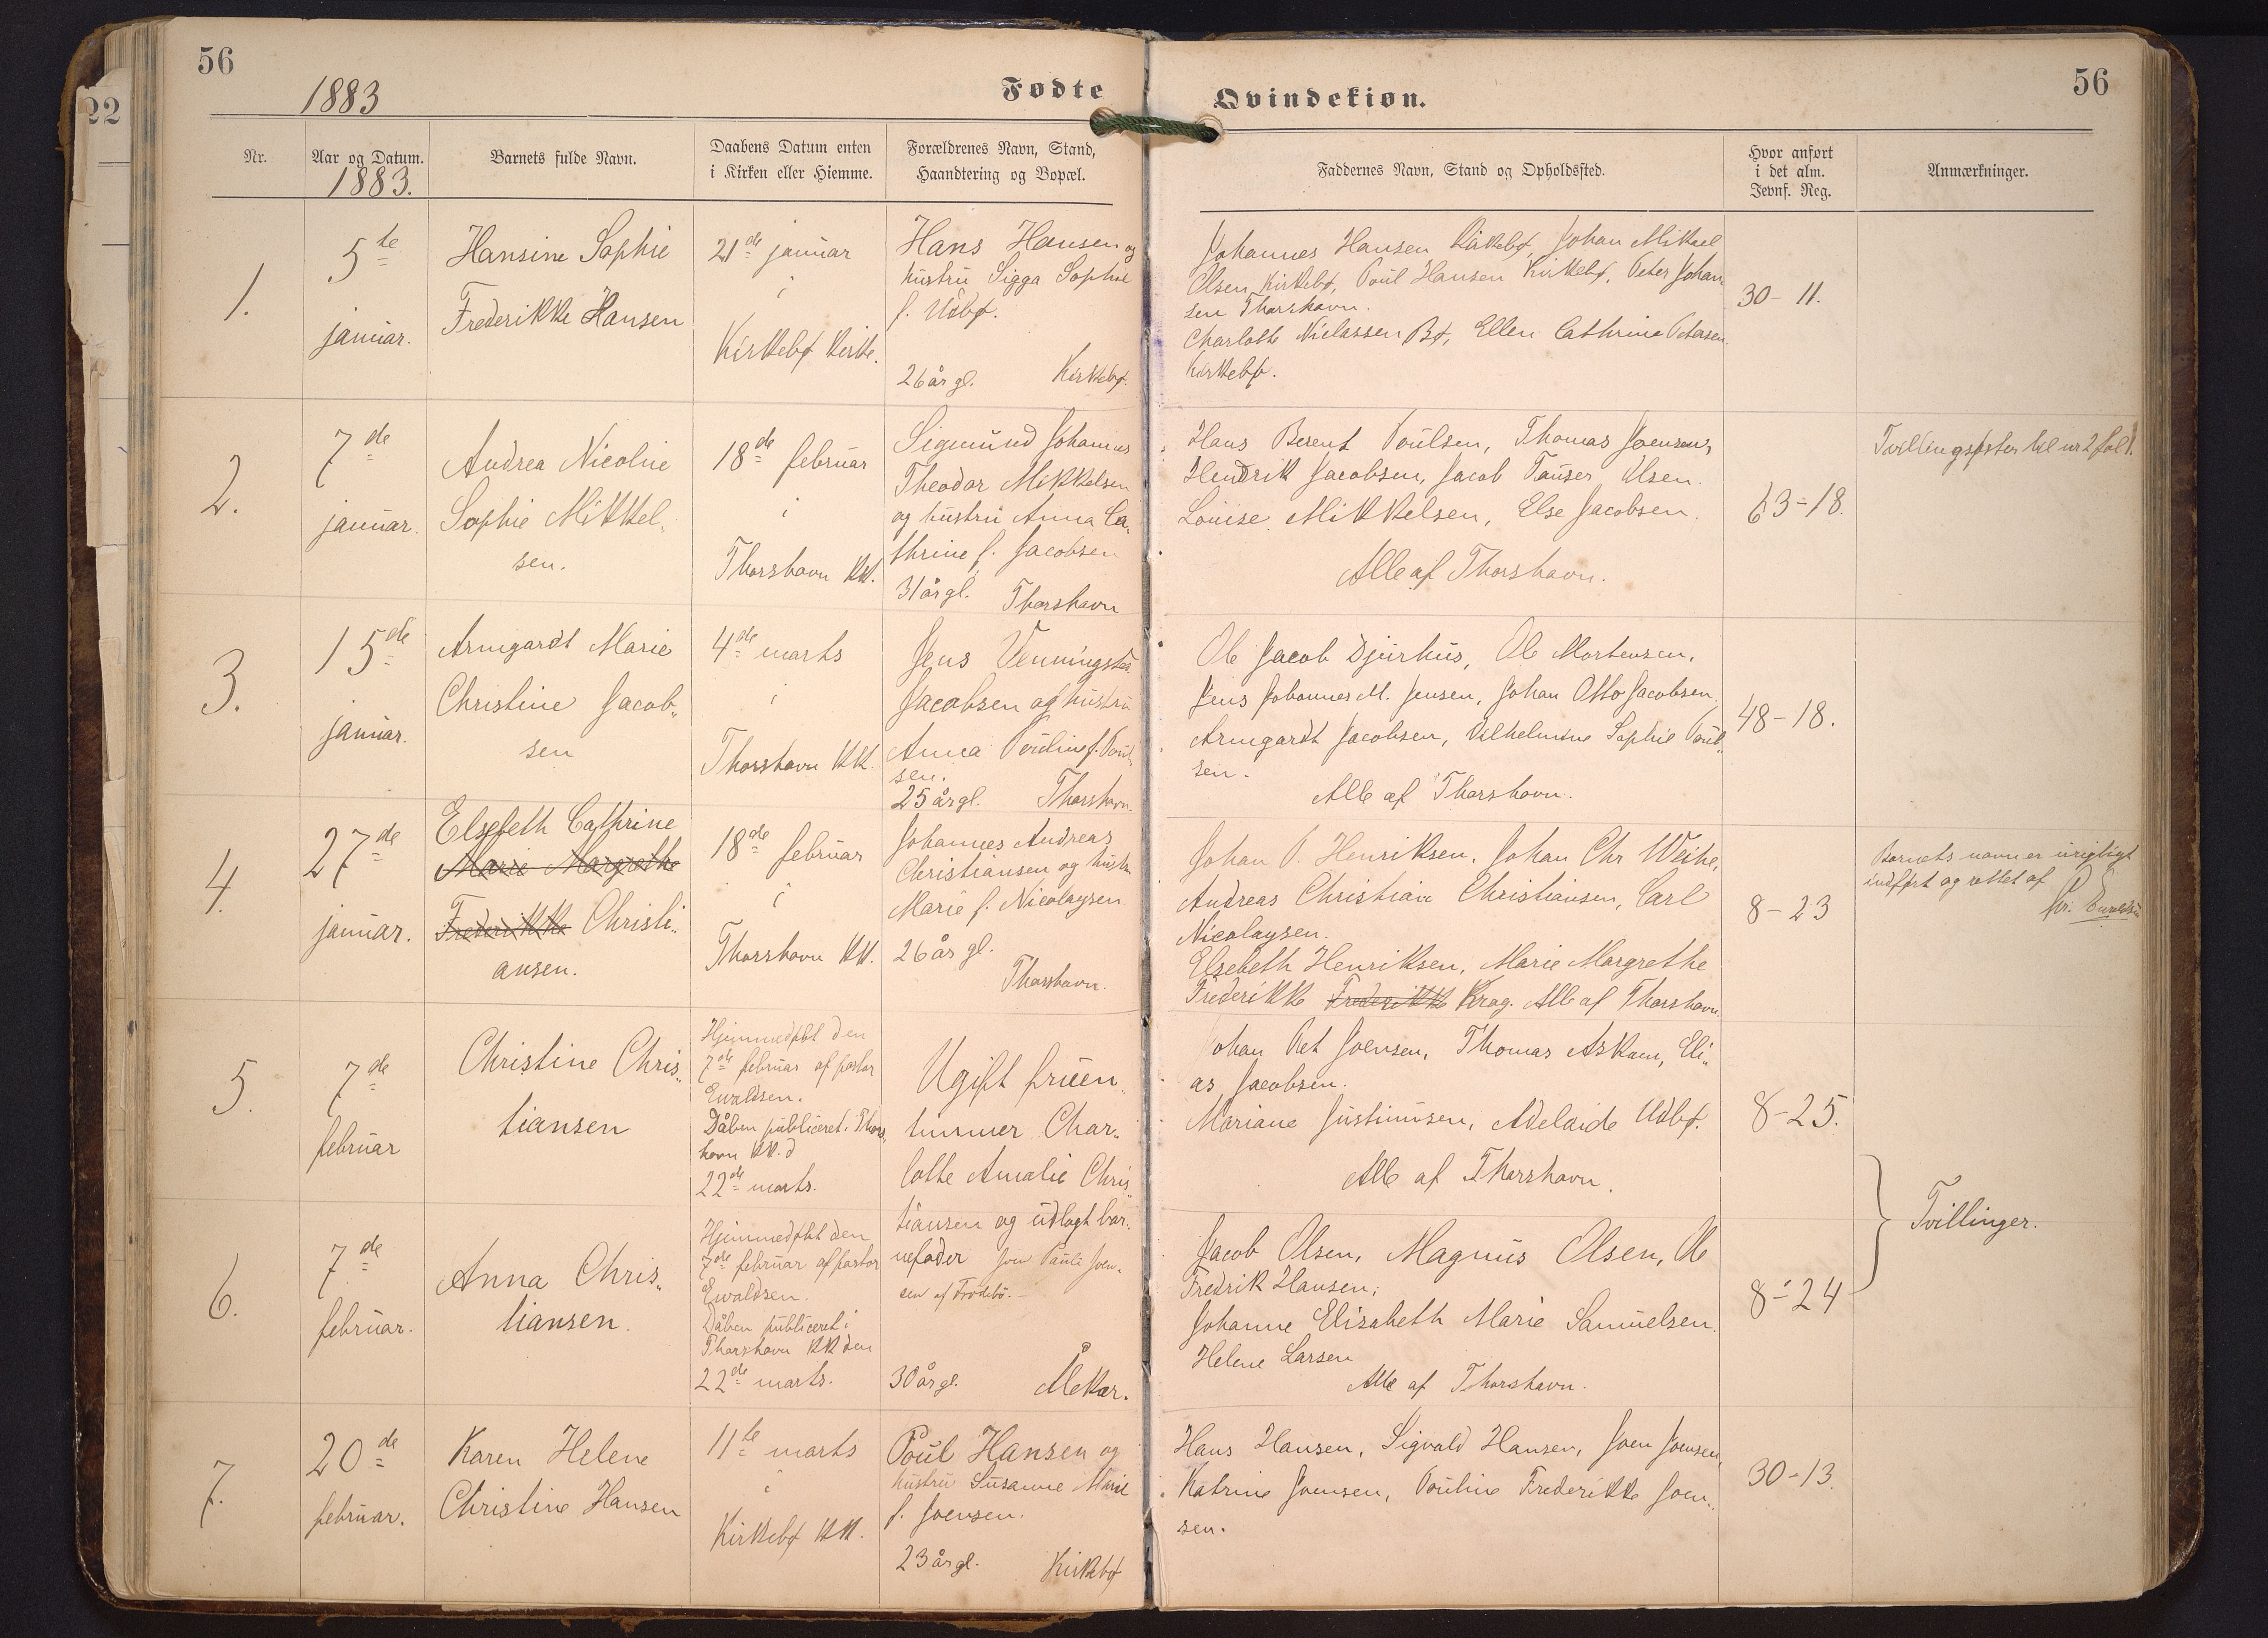 56
1883
Fødte
Qvindekiøn.
56
22
Nr.
Aar og Datum.
1883.
Barnets fulde Navn.
Daabens Datum enten
i Kirken eller Hiemme.
Forældrenes Navn, Stand,
Haandtering og Bopæl.
Faddernes Navn, Stand og Opholdssted.
Hvor anført
i det alm.
Jevnf. Reg.
Anmærkninger.
1.
5te
januar.
Hansine Sophie
Frederikke Hansen
21de januar
i
Kirkebø Kirke.
Hans Hansen og
hustru Sigga Sophie
f. Udbø.
26 år gl. Kirkebø.
Johannes Hansen Kirkebø, Johan Mikael
Olsen Kirkebø, Poul Hansen Kirkebø, Peter Johan-
sen Thorshavn.
Charlotte Nielassen Bø, Ellen Cathrine Petersen
Kirkebø.
30-11.
2.
7de
januar.
Andrea Nicoline
Sophie Mikkel-
sen.
18de februar
i
Thorshavn KK.
Sigmund Johannes
Theodor Mikkelsen
og hustru Anna Ca-
thrine f. Jacobsen
31 år gl. Thorshavn
Hans Berent Poulsen, Thomas Joensen,
Hendrik Jacobsen, Jacob Tauser Olsen.
Louise Mikkelsen, Else Jacobsen.
Alle af Thorshavn.
63-18.
Tvillingsøster til nr 2 fol 1.
3.
15de
januar.
Armgardt Marie
Christine Jacob-
sen
4de marts
i
Thorshavn KK.
Jens Venningsted
Jacobsen og hustru
Anna Pouline f. Poul-
sen.
25 år gl. Thorshavn.
Ole Jacob Djurhus, Ole Mortensen,
Jens Johannes M. Jensen, Johan Otto Jacobsen
Armgardt Jacobsen, Vilhelmine Sophie Poul-
sen.
Alle af Thorshavn.
48-18.
4.
27de
januar.
Elsebeth Cathrine
Marie Margrethe
Frederikke Christi-
ansen.
18de februar
i
Thorshavn KK.
Johannes Andreas
Christiansen og hustru
Marie f. Nicolaysen.
26 år gl.
Thorshavn.
Johan P. Henriksen, Johan Chr Weihe,
Andreas Christian Christiansen, Carl
Nicolaysen.
Elsebeth Henriksen, Marie Margrethe
Frederikke Frederikke Krag. Alle af Thorshavn.
8-23
Barnets navn er urigtigt
indført og rettet af
Fr: Evaldsen
5.
7de
februar
Christine Chris-
tiansen
Hjemmedøbt den
7de februar af pastor
Evaldsen.
Dåben publiceret i Thors-
havn KK. d
22de marts.
Ugift fruen-
timmer Char-
lotte Amalie Chris-
tiansen og udlagt bar-
nefader Joen Pauli Joen-
sen af Frodebø.
Johan Pet Joensen, Thomas Askam, Eli-
as Jacobsen.
Mariane Justinussen, Adelaide Udbø.
Alle af Thorshavn.
8-25.
Tvillinger.
6.
7de
februar.
Anna Chris-
tiansen.
Hjemmedøbt den
7de februar af pastor
Evaldsen.
Dåben publiceret i
Thorshavn KK den
22de marts.
30 år gl.
Jacob Olsen, Magnus Olsen, Ole
Fredrik Hansen;
Johanne Elisabeth Marie Samuelsen.
Helene Larsen
Alle af Thorshavn.
8-24
7.
20de
februar.
Karen Helene
Christine Hansen
11te marts
i
Kirkebø KK.
Poul Hansen og
hustru Susanne Marie
f. Joensen.
23 år gl. Kirkebø
Hans Hansen, Sigvald Hansen, Joen Joensen,
Katrine Joensen, Pouline Frederikke Joen-
sen.
30-13.